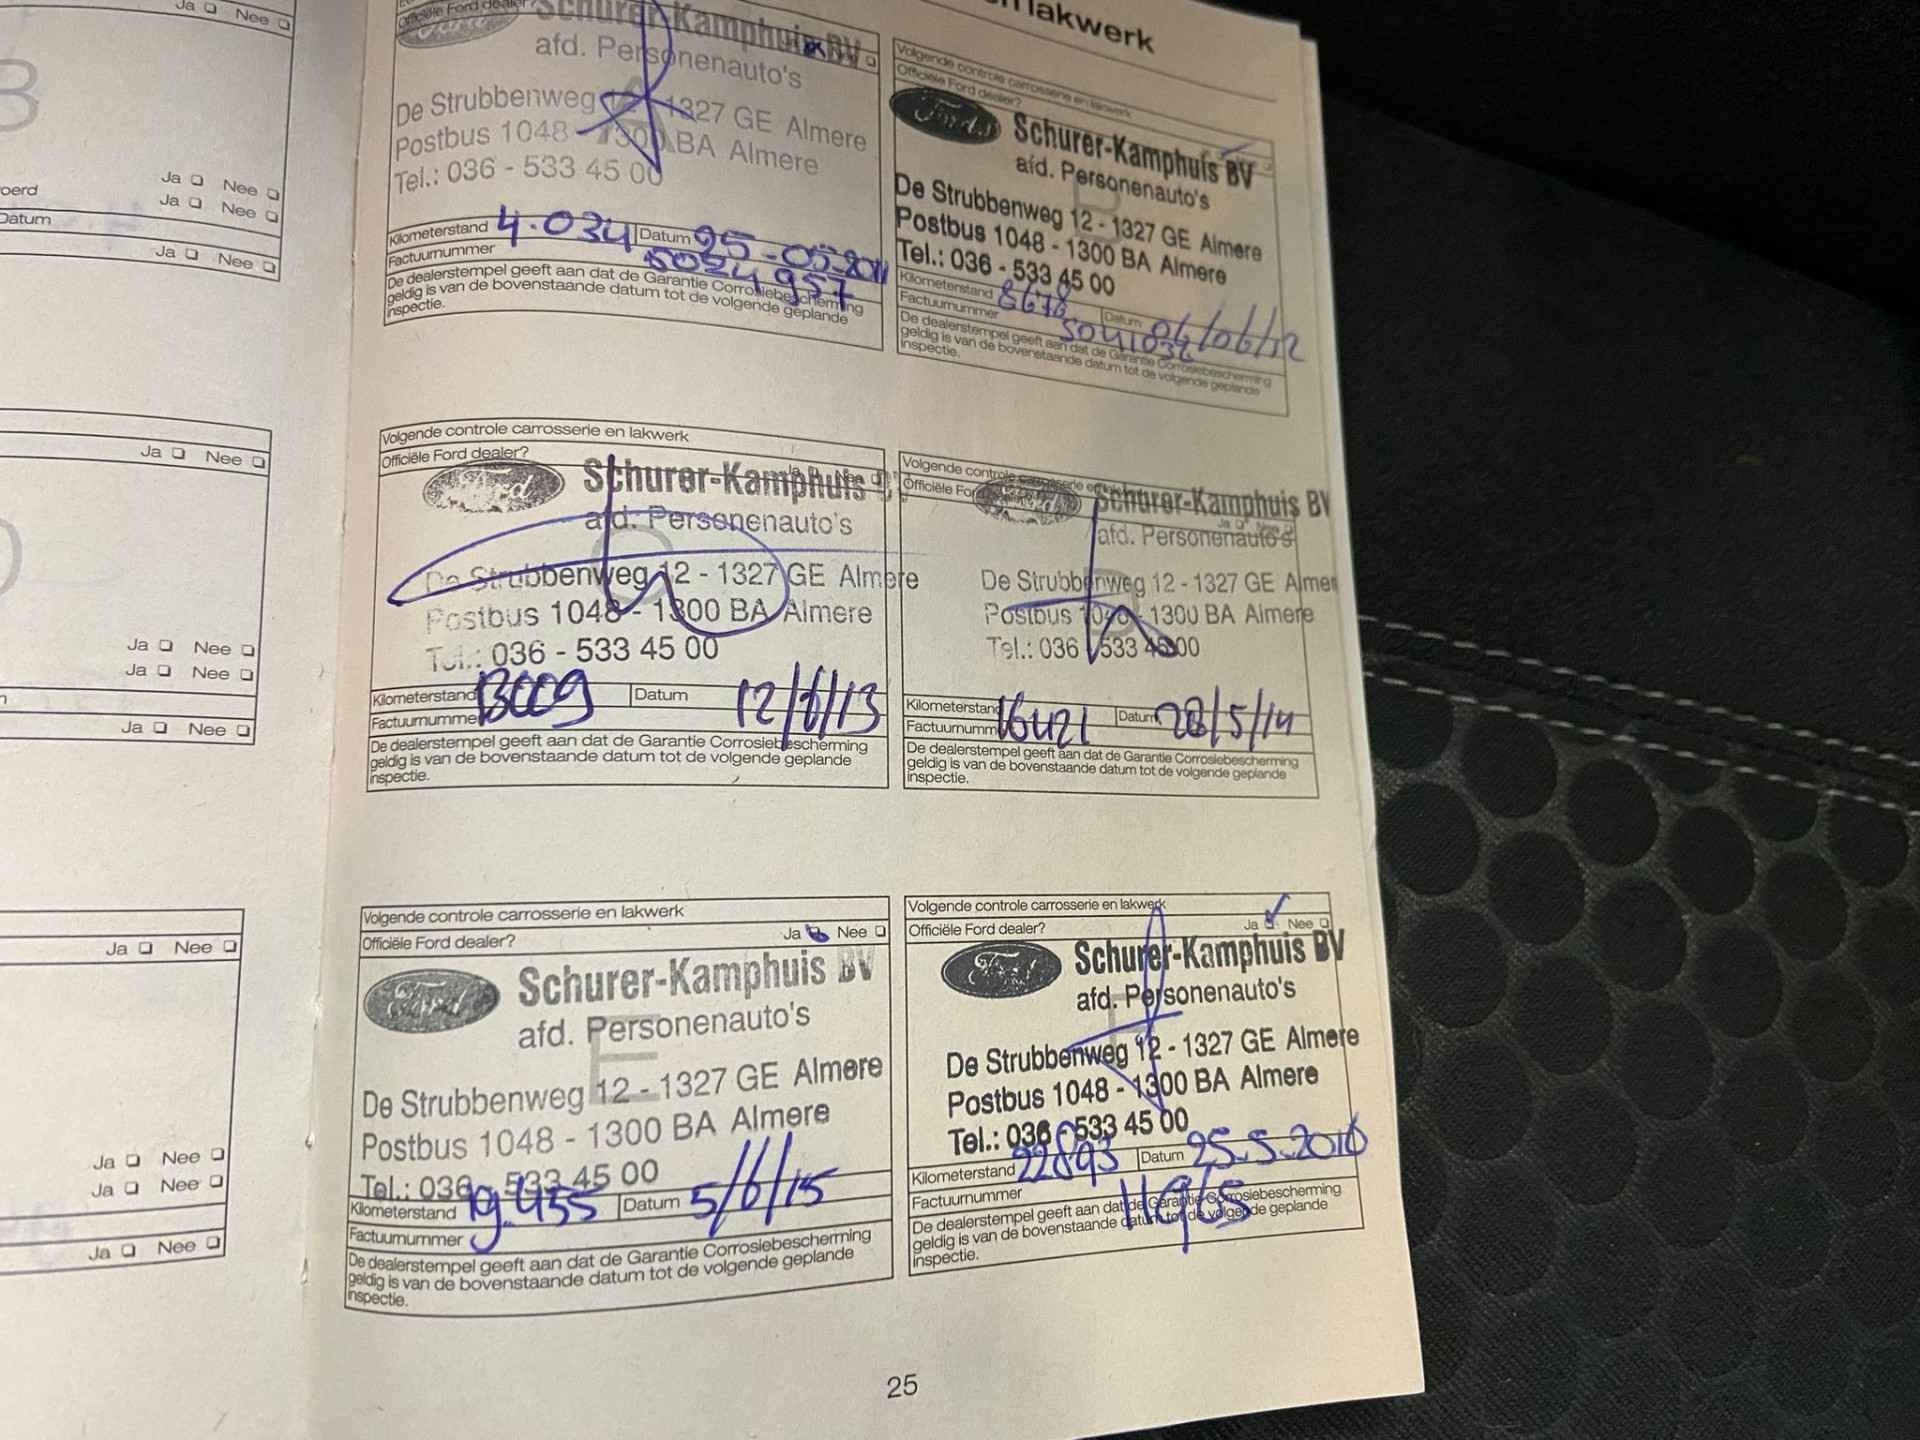 lakwerk
Ja Nee
Officiële Ford dealer?
Schurer-Kamphuis BV
afd. Personenauto's
De Strubbenweg 1327 GE Almere
Postbus 1048 - 1300 BA Almere
Tel.: 036 - 533 45 00
Kilometerstand 4.034 Datum 25-05-2011
Factuurnummer 5024957
De dealerstempel geeft aan dat de Garantie Corrosiebescherming
geldig is van de bovenstaande datum tot de volgende geplande
inspectie.
Volgende controle carrosserie en lakwerk
Officiële Ford dealer?
Ford
Schurer-Kamphuis BV
afd. Personenauto's
De Strubbenweg 12 - 1327 GE Almere
Postbus 1048 - 1300 BA Almere
Tel.: 036 - 533 45 00
Kilometerstand 8678 Datum 04/06/12
Factuurnummer 5041034
De dealerstempel geeft aan dat de Garantie Corrosiebescherming
geldig is van de bovenstaande datum tot de volgende geplande
inspectie.
Volgende controle carrosserie en lakwerk
Officiële Ford dealer? Ja Nee
Ford
Schurer-Kamphuis
afd. Personenauto's
De Strubbenweg 12 - 1327 GE Almere
Postbus 1048 - 1300 BA Almere
Tel.: 036 - 533 45 00
Kilometerstand 13009 Datum 12/6/13
Factuurnummer
De dealerstempel geeft aan dat de Garantie Corrosiebescherming
geldig is van de bovenstaande datum tot de volgende geplande
inspectie.
Volgende controle
Officiële
Schurer-Kamphuis BV
Ja Nee
afd. Personenauto's
De Strubbenweg 12 - 1327 GE Almere
Postbus 1048 - 1300 BA Almere
Tel.: 036 533 45 00
Kilometerstand 16421 Datum 28/5/14
De dealerstempel geeft aan dat de Garantie Corrosiebescherming
geldig is van de bovenstaande datum tot de volgende geplande
inspectie.
Volgende controle carrosserie en lakwerk
Officiële Ford dealer? Ja Nee
Ford
Schurer-Kamphuis BV
afd. Personenauto's
E
De Strubbenweg 12 - 1327 GE Almere
Postbus 1048 - 1300 BA Almere
Tel.: 036 - 533 45 00
Kilometerstand 19.455 Datum 5/6/15
Factuurnummer
De dealerstempel geeft aan dat de Garantie Corrosiebescherming
geldig is van de bovenstaande datum tot de volgende geplande
inspectie.
Volgende controle carrosserie en lakwerk
Officiële Ford dealer? Ja Nee
Ford
Schurer-Kamphuis BV
afd. Personenauto's
De Strubbenweg 12 - 1327 GE Almere
Postbus 1048 - 1300 BA Almere
Tel.: 036 - 533 45 00
Kilometerstand 22893 Datum 25.5.2016
Factuurnummer 11965
De dealerstempel geeft aan dat de Garantie Corrosiebescherming
geldig is van de bovenstaande datum tot de volgende geplande
inspectie.
25
Ja Nee
oerd
Ja Nee
Datum
Ja Nee
Ja Nee
Ja Nee
Ja Nee
Ja Nee
Ja Nee
Ja Nee
Ja Nee
Ja Nee